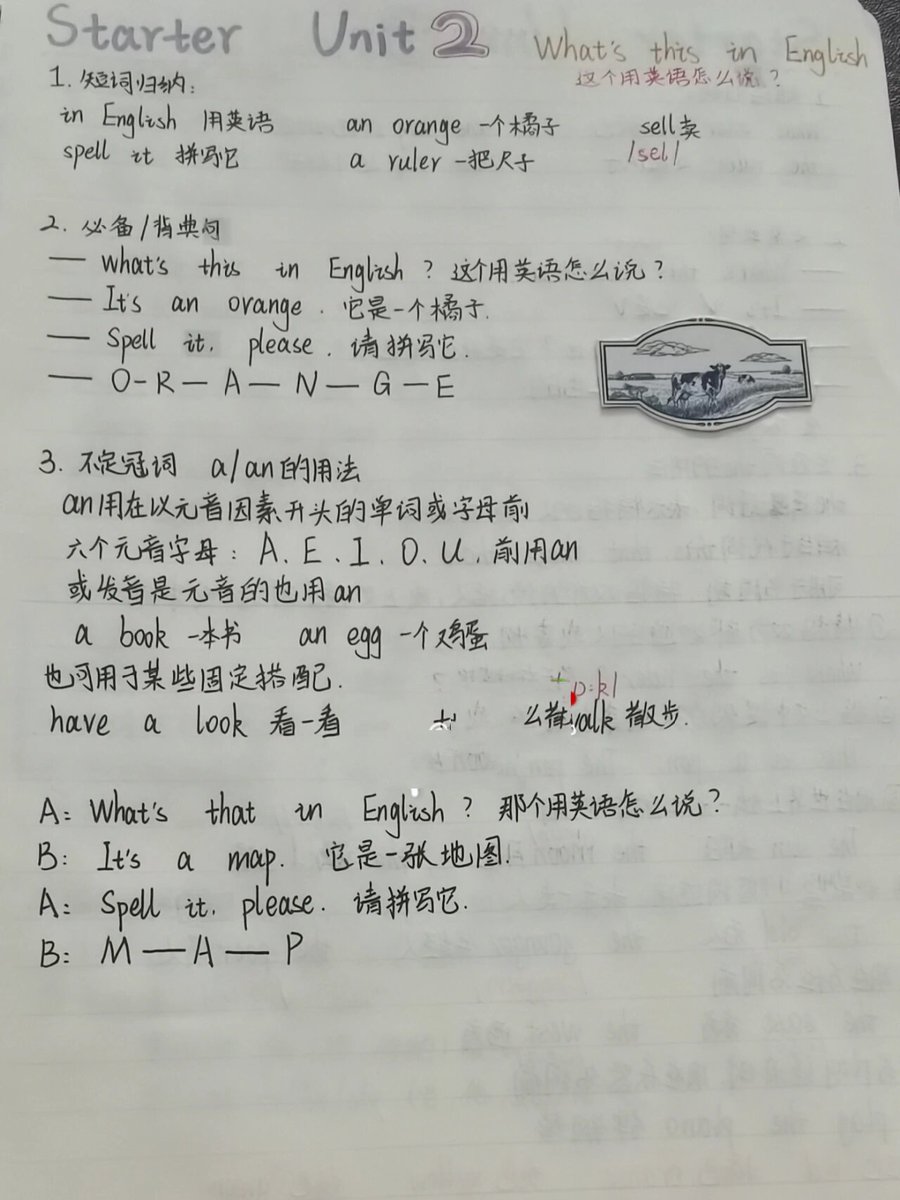 Starter Unit 2 What's this in English
这个用英语怎么说?
1. 短词归纳:
in English 用英语 an orange 一个橘子 sell 卖
spell it 拼写它 a ruler 一把尺子 /sel/
2. 必备/背典句
— What's this in English? 这个用英语怎么说?
— It's an orange. 它是一个橘子.
— Spell it, please. 请拼写它.
— O-R-A-N-G-E
3. 不定冠词 a/an的用法
an用在以元音因素开头的单词或字母前
六个元音字母: A、E、I、O、U、前用an
或发音是元音的也用an
a book 一本书 an egg 一个鸡蛋
也可用于某些固定搭配.
have a look 看一看 散步.
A: What's that in English? 那个用英语怎么说?
B: It's a map. 它是一张地图.
A: Spell it, please. 请拼写它.
B: M—A—P